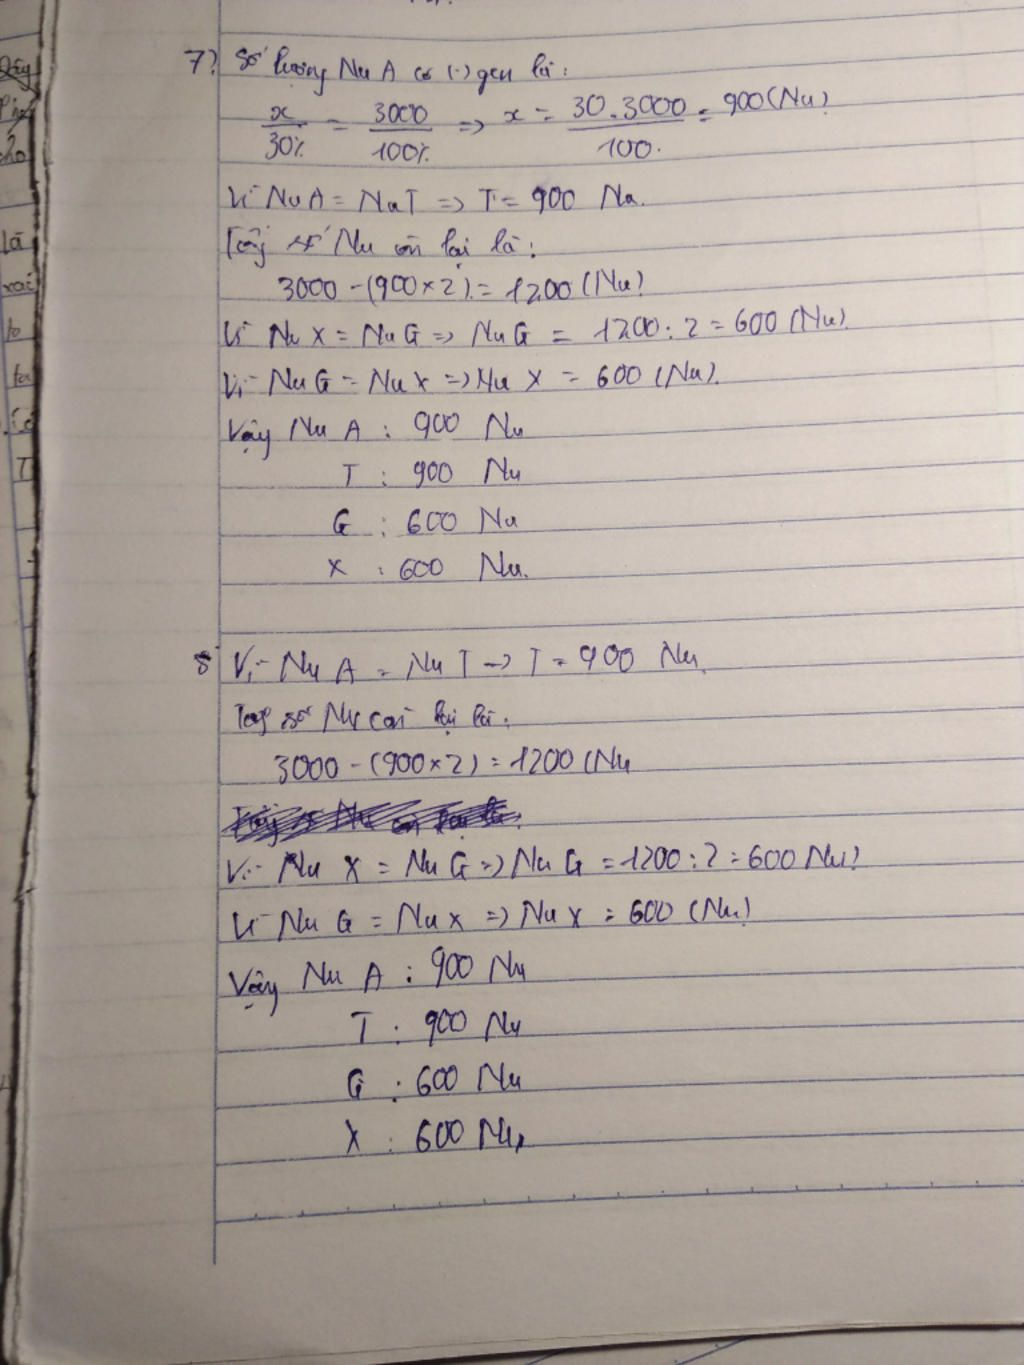 7) Số lượng Nu A có (.) gen là:
x/30% = 3000/100% => x = 30.3000/100. = 900 (Nu)
Vì Nu A = Nu T => T = 900 Nu.
Tổng số Nu còn lại là:
3000 - (900 x 2) = 1200 (Nu)
Vì Nu X = Nu G => Nu G = 1200 : 2 = 600 (Nu).
Vì Nu G = Nu X => Nu X = 600 (Nu).
Vậy Nu A : 900 Nu
T : 900 Nu
G : 600 Nu
X : 600 Nu.
8 Vì Nu A = Nu T -> T = 900 Nu.
Tổng số Nu còn lại là:
3000 - (900 x 2) = 1200 (Nu
Vì Nu X = Nu G => Nu G = 1200 : 2 = 600 Nu)
Vì Nu G = Nu X => Nu X = 600 (Nu)
Vậy Nu A : 900 Nu
T : 900 Nu
G : 600 Nu
X : 600 Nu,
Là
T